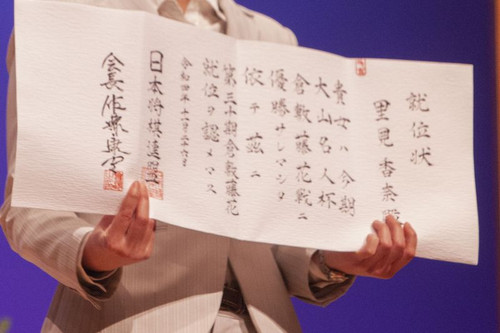 就位状
里見 香奈殿
貴女ハ今期
大山名人杯
倉敷藤花戦ニ
優勝サレマシタ
依テ茲ニ
第三十期倉敷藤花
就位ヲ認メマス
令和四年十二月二十六日
日本将棋連盟
会長 佐藤康光